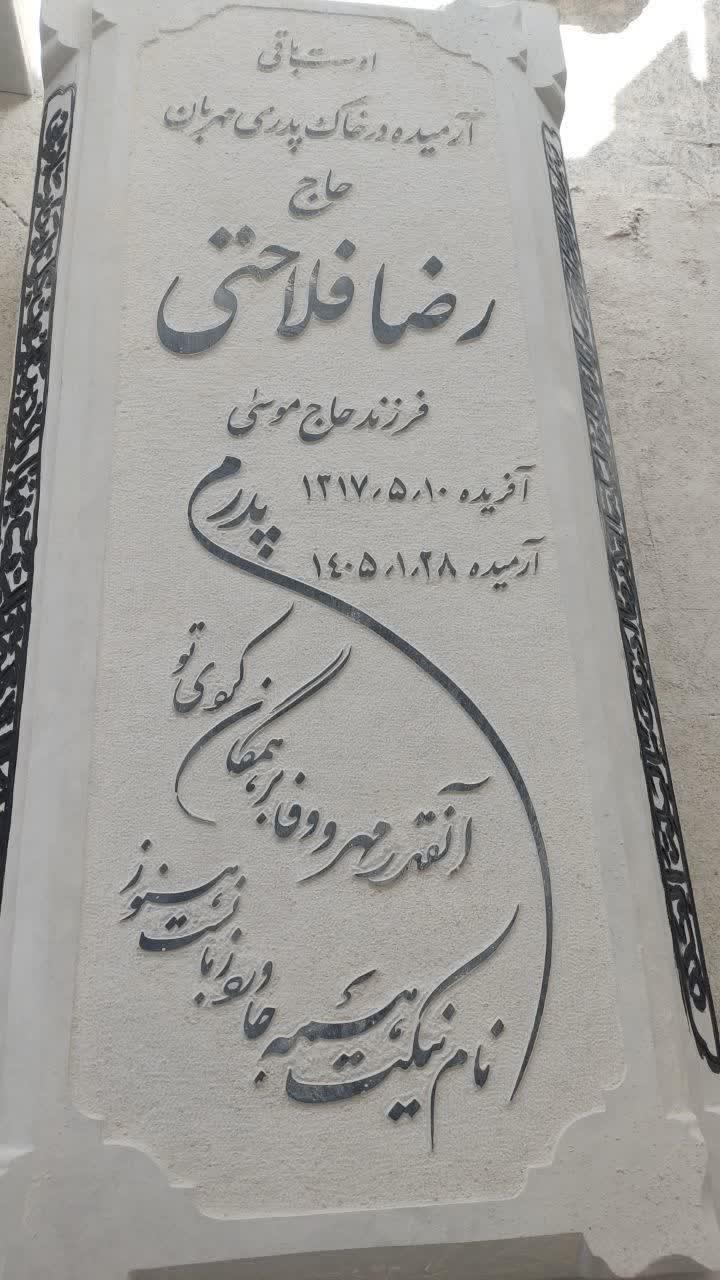 اوست باقی
آرمیده در خاک پدری مهربان
حاج
رضا فلاحتی
فرزند حاج موسی
آفریده ۱۳۱۷،۵،۱۰
آرمیده ۱۴۰۵،۱،۲۸
پدرم
آنقدر مهر و وفا بر همگان کردی تو
نام نیکت همیشه جا ورد زبانست هنوز